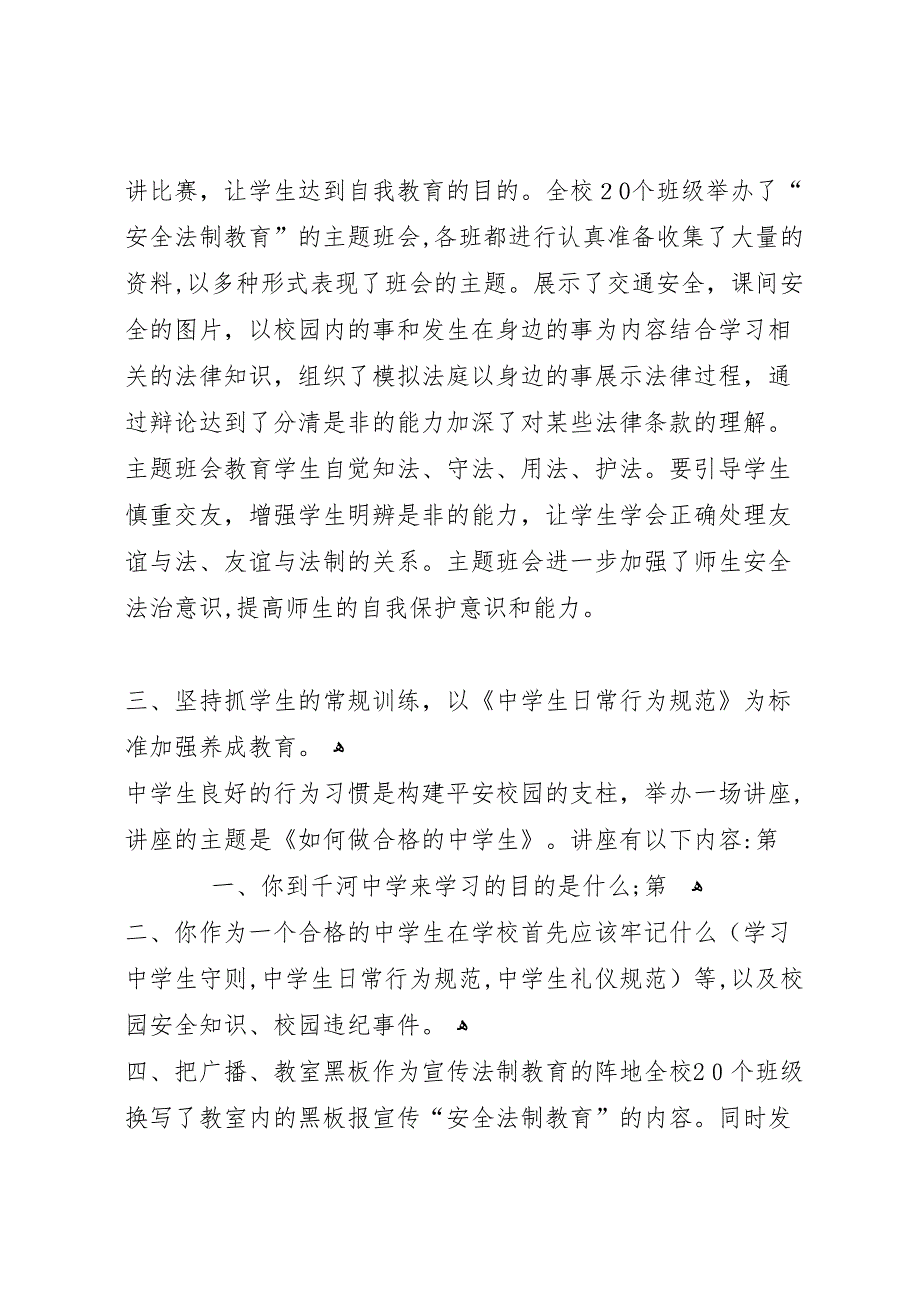 讲比赛，让学生达到自我教育的目的。全校20个班级举办了“
安全法制教育”的主题班会,各班都进行认真准备收集了大量的
资料,以多种形式表现了班会的主题。展示了交通安全，课间安
全的图片，以校园内的事和发生在身边的事为内容结合学习相
关的法律知识，组织了模拟法庭以身边的事展示法律过程，通
过辩论达到了分清是非的能力加深了对某些法律条款的理解。
主题班会教育学生自觉知法、守法、用法、护法。要引导学生
慎重交友，增强学生明辨是非的能力，让学生学会正确处理友
谊与法、友谊与法制的关系。主题班会进一步加强了师生安全
法治意识,提高师生的自我保护意识和能力。
三、坚持抓学生的常规训练，以《中学生日常行为规范》为标
准加强养成教育。 ﻫ
中学生良好的行为习惯是构建平安校园的支柱，举办一场讲座,
讲座的主题是《如何做合格的中学生》。讲座有以下内容:第
一、你到千河中学来学习的目的是什么;第 ﻫ
二、你作为一个合格的中学生在学校首先应该牢记什么（学习
中学生守则,中学生日常行为规范,中学生礼仪规范）等,以及校
园安全知识、校园违纪事件。 ﻫ
四、把广播、教室黑板作为宣传法制教育的阵地全校20个班级
换写了教室内的黑板报宣传“安全法制教育”的内容。同时发